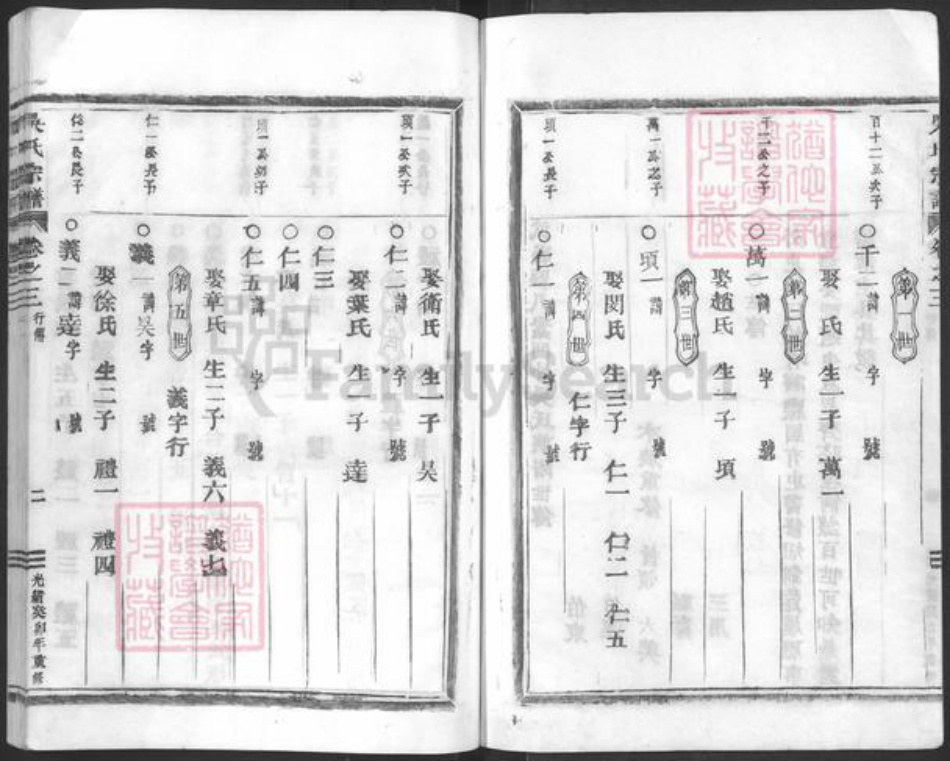 第一世
百十二公次子
○千二諱 字 號
娶 氏 生一子 萬一
第二世
千二公之子
○萬一諱 字 號
娶趙氏 生一子 項
第三世
萬一公之子
○項一諱 字 號
娶閔氏 生三子 仁一 仁二 仁五
第四世 仁字行
項一公長子
○仁一諱 字 號
娶衛氏 生一子 吴
項一公次子
○仁二諱 字 號
娶葉氏 生 子 達
○仁三
○仁四
項一公 子
○仁五諱 字 號
娶章氏 生二子 義六 義七
第五世 義字行
仁一公長子
○義一諱吴字 號
娶徐氏 生二子 禮一 禮四
仁二公長子
○義二諱達字 號
吴氏宗譜 卷之三 行傳 二 光緒癸卯年重修
FamilySearch